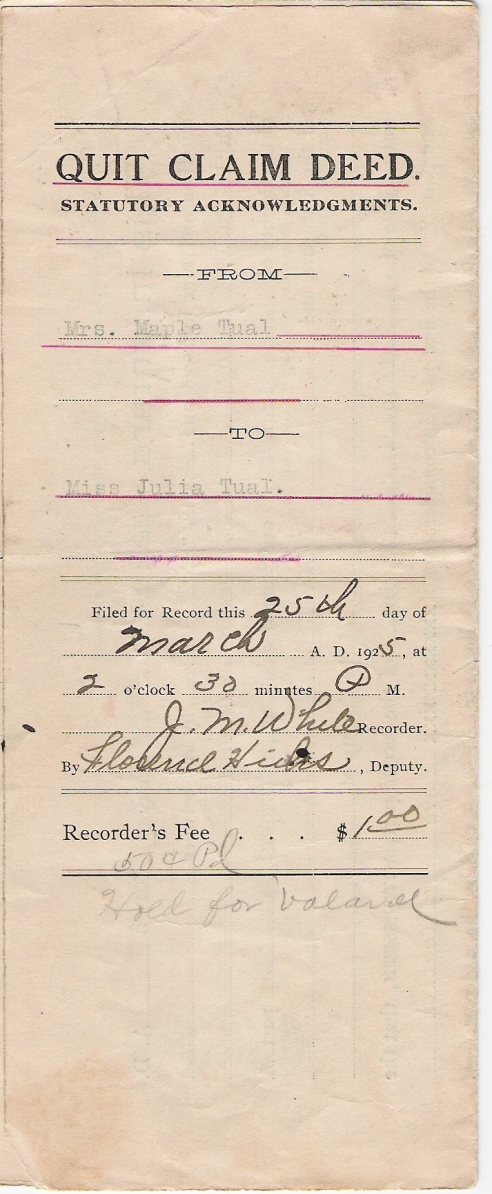 QUIT CLAIM DEED.
STATUTORY ACKNOWLEDGMENTS.
FROM
Mrs. Maple Tual
TO
Miss Julia Tual.
Filed for Record this 25th day of
March A. D. 1925, at
2 o'clock 30 minutes P M.
J. M. White Recorder.
By Florence , Deputy.
Recorder's Fee . . . $1.00
50¢ Pd
Hold for